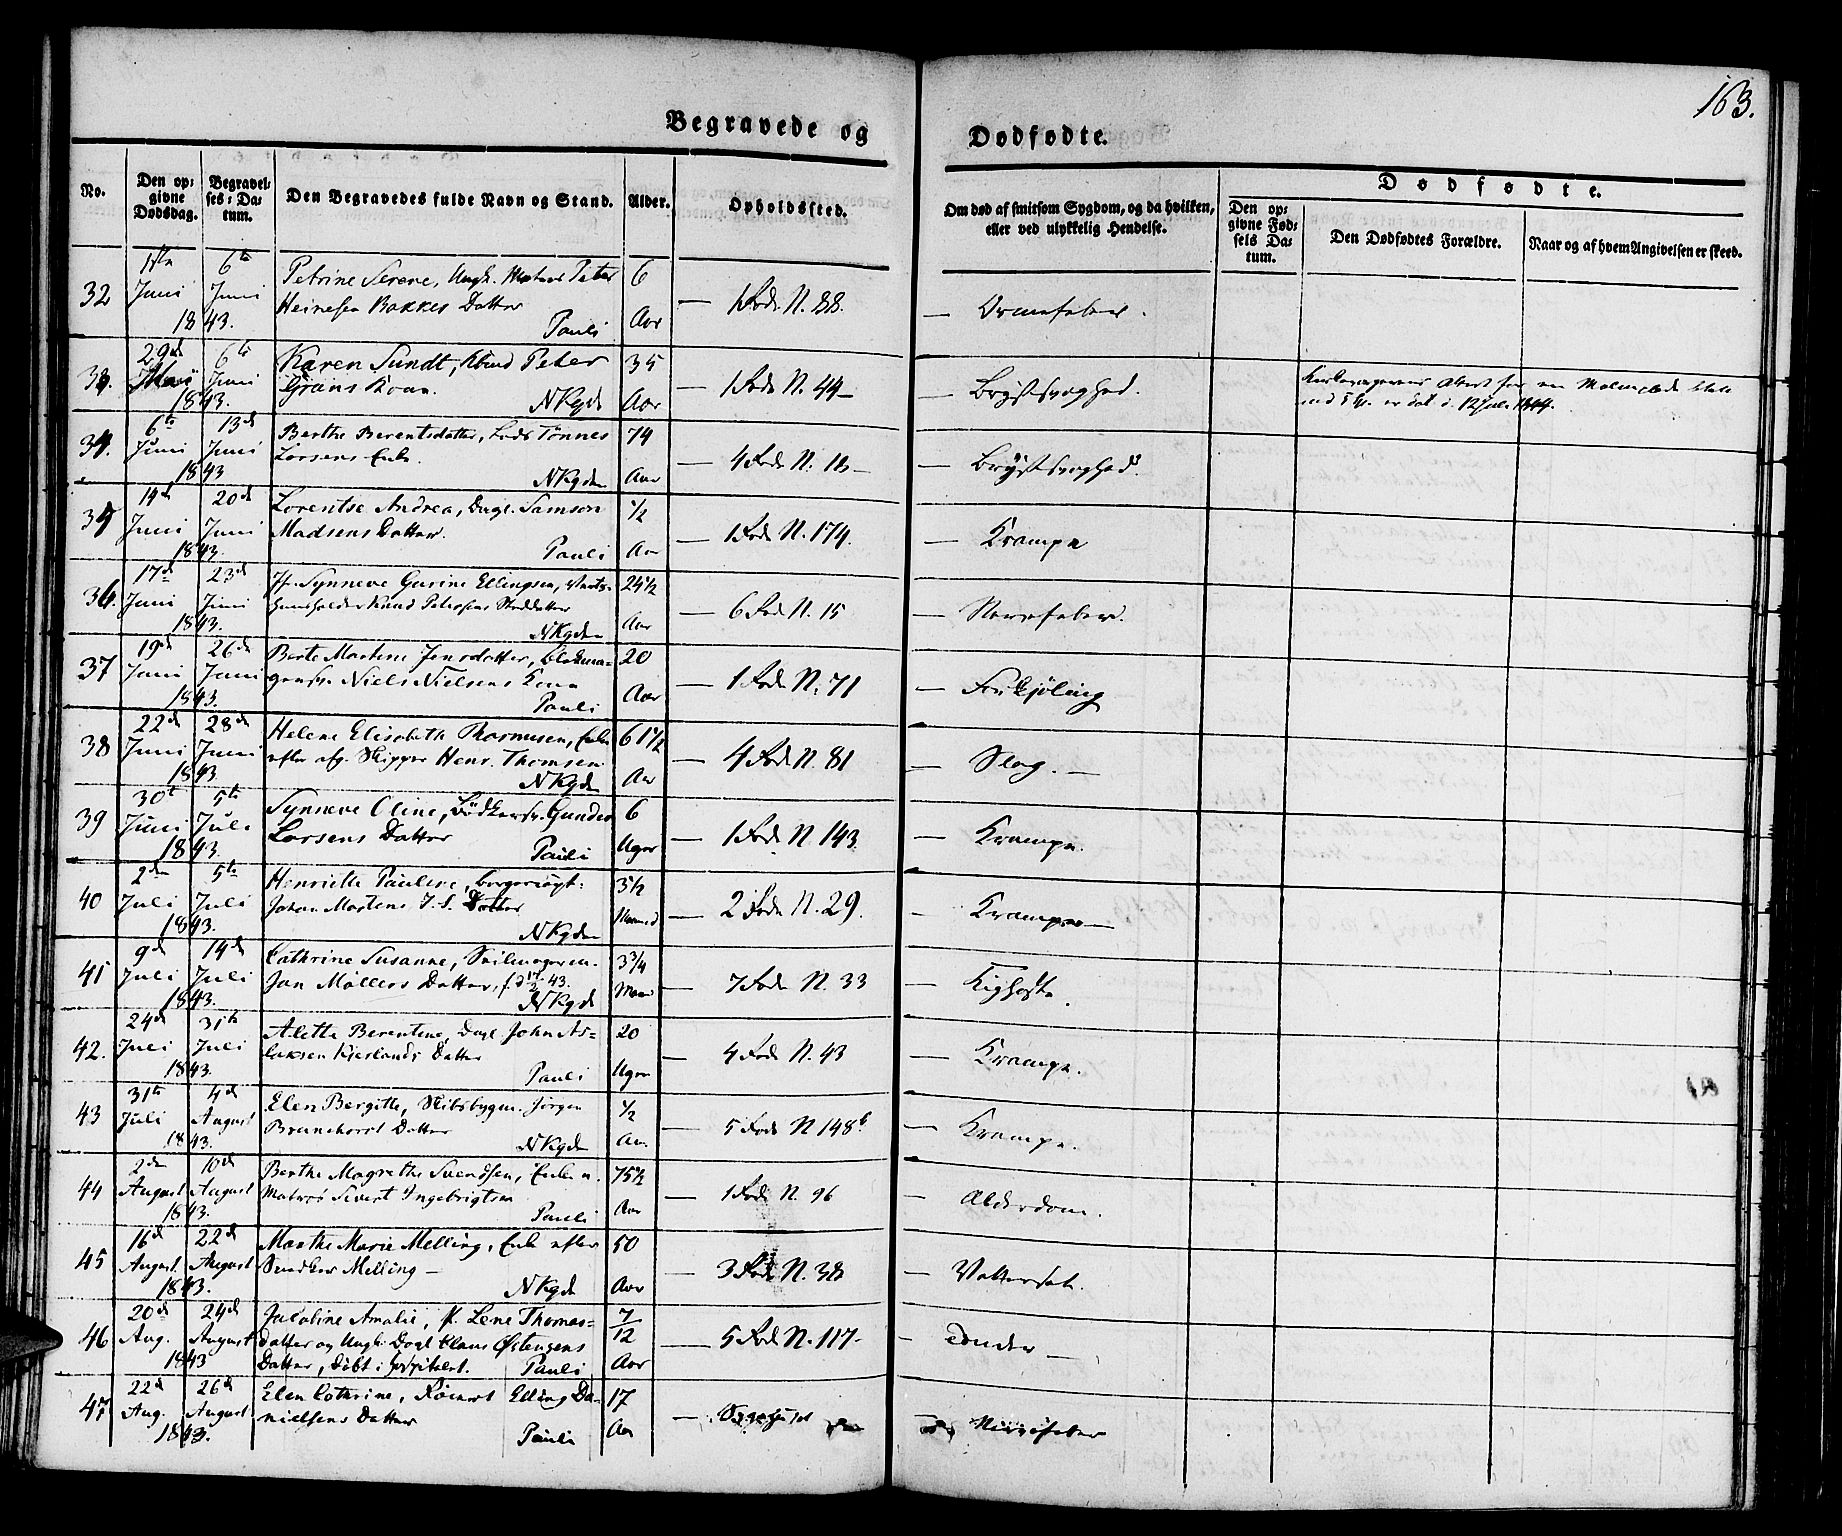 163.
Begravede og Dødfødte.
No.
Den op-
givne
Dødsdag.
Begravel-
ses-Da-
tum.
Den Begravedes fulde Navn og Stand.
Alder.
Opholdssted.
Om død af smitsom Sygdom, og da hvilken,
eller ved ulykkelig Hendelse.
Dødfødte.
Den op-
givne Fød-
sels Da-
tum.
Den Dødfødtes Forældre.
Naar og af hvem Angivelsen er skeed.
32 Juni 6te Juni 1843. Petrine Serene, Ungk. Matros Peter
Heinesen Bakkes Datter
Pauli 6 Aar — 1 Rode N. 88. —
33. 29de Mai 6te Juni 1843. Karen Sundt, Peter
Kone.
NKgde 35 Aar — 1 Rode N. 44 — — Brystsvaghed.
34. 6te Juni 13de Juni 1843 Berthe Berentsdatter, Lods Tønnes
Larsens Enke.
NKgden 74 Aar — 4 Rode N. — — Brystsvaghed.
35 14de Juni 20de Juni 1843. Lorentse Andrea, Dagl. Samson
Madsens Datter.
Pauli 1/2 Aar — 1 Rode N. 174. — Krampe
36. 17de Juni 23de Juni 1843. Jf. Synneve Gurine Ellingsen,
Knud Petersens Datter
NKgden 24 1/2 Aar — 6 Rode N. 15 — Nervefeber.
37 19de Juni 26de Juni 1843. Berte Martine Jensdatter, Blokma-
Niels Nielsens Kone
Pauli 20 Aar — 1 Rode N. 71 — Forkjøling
38 22de Juni 28de Juni 1843. Helene Elisabeth Rasmusen, Enke
efter afg. Skipper Henr. Thomsen
NKgden 61 1/2 Aar — 4 Rode N. 81 — Slag. —
39 30te Juni 5te Juli 1843. Synneve Oline, Bødkersv. Gunder
Larsens Datter
Pauli 6 Uger — 1 Rode N 143. — Krampe.
40 2den Juli 5te Juli 1843. Henriette Pauline,
Johan Martens J. S. Datter
NKgden 3 1/2 Maaned — 2 Rode N. 29. — Krampe —
41 9de Juli 14de Juli 1843. Cathrine Susanne, Seilmagerm.
Jan Møllers Datter,
NKgde 3 3/4 Maan — 7 Rode N. 33 — Kighoste.
42. 24de Juli 31te Juli 1843. Alette Berentine, Dagl. John As-
laksen Kjerlands Datter
Pauli 20 Uger — 4 Rode N. 43 — Krampe.
43 31te Juli 4de August 1843. Elen Bergithe, Skibsbygm. Jørgen
Brunchorst Datter
NKgde 1/2 Aar — 5 Rode N 148b — Krampe.
44 2den August 10de August 1843. Berthe Magrethe Svendsen, Enke e.
Matros Sivert Ingebrigtsen
Pauli 75 1/2 Aar — 1 Rode N. 96 — Alderdom.
45 16de August. 22de August 1843. Marthe Marie Melling, Enke efter
Snedker Melling —
NKgde 50 Aar — 3 Rode N. 38 — Vattersot.
46 20de Aug. 24de August 1843 Jacobine Amalie, P. Lene Thomas-
datter og Ungk. Dagl. Claus Østensens
Datter, Døbt i Hospitalet. Pauli 7/12 Aar — 5 Rode N. 117 —
47 22de Aug. 26de August 1843. Elen Cathrine, Elling Da-
nielsens Datter
Pauli 17 Aar — Sygehuset — Nervefeber